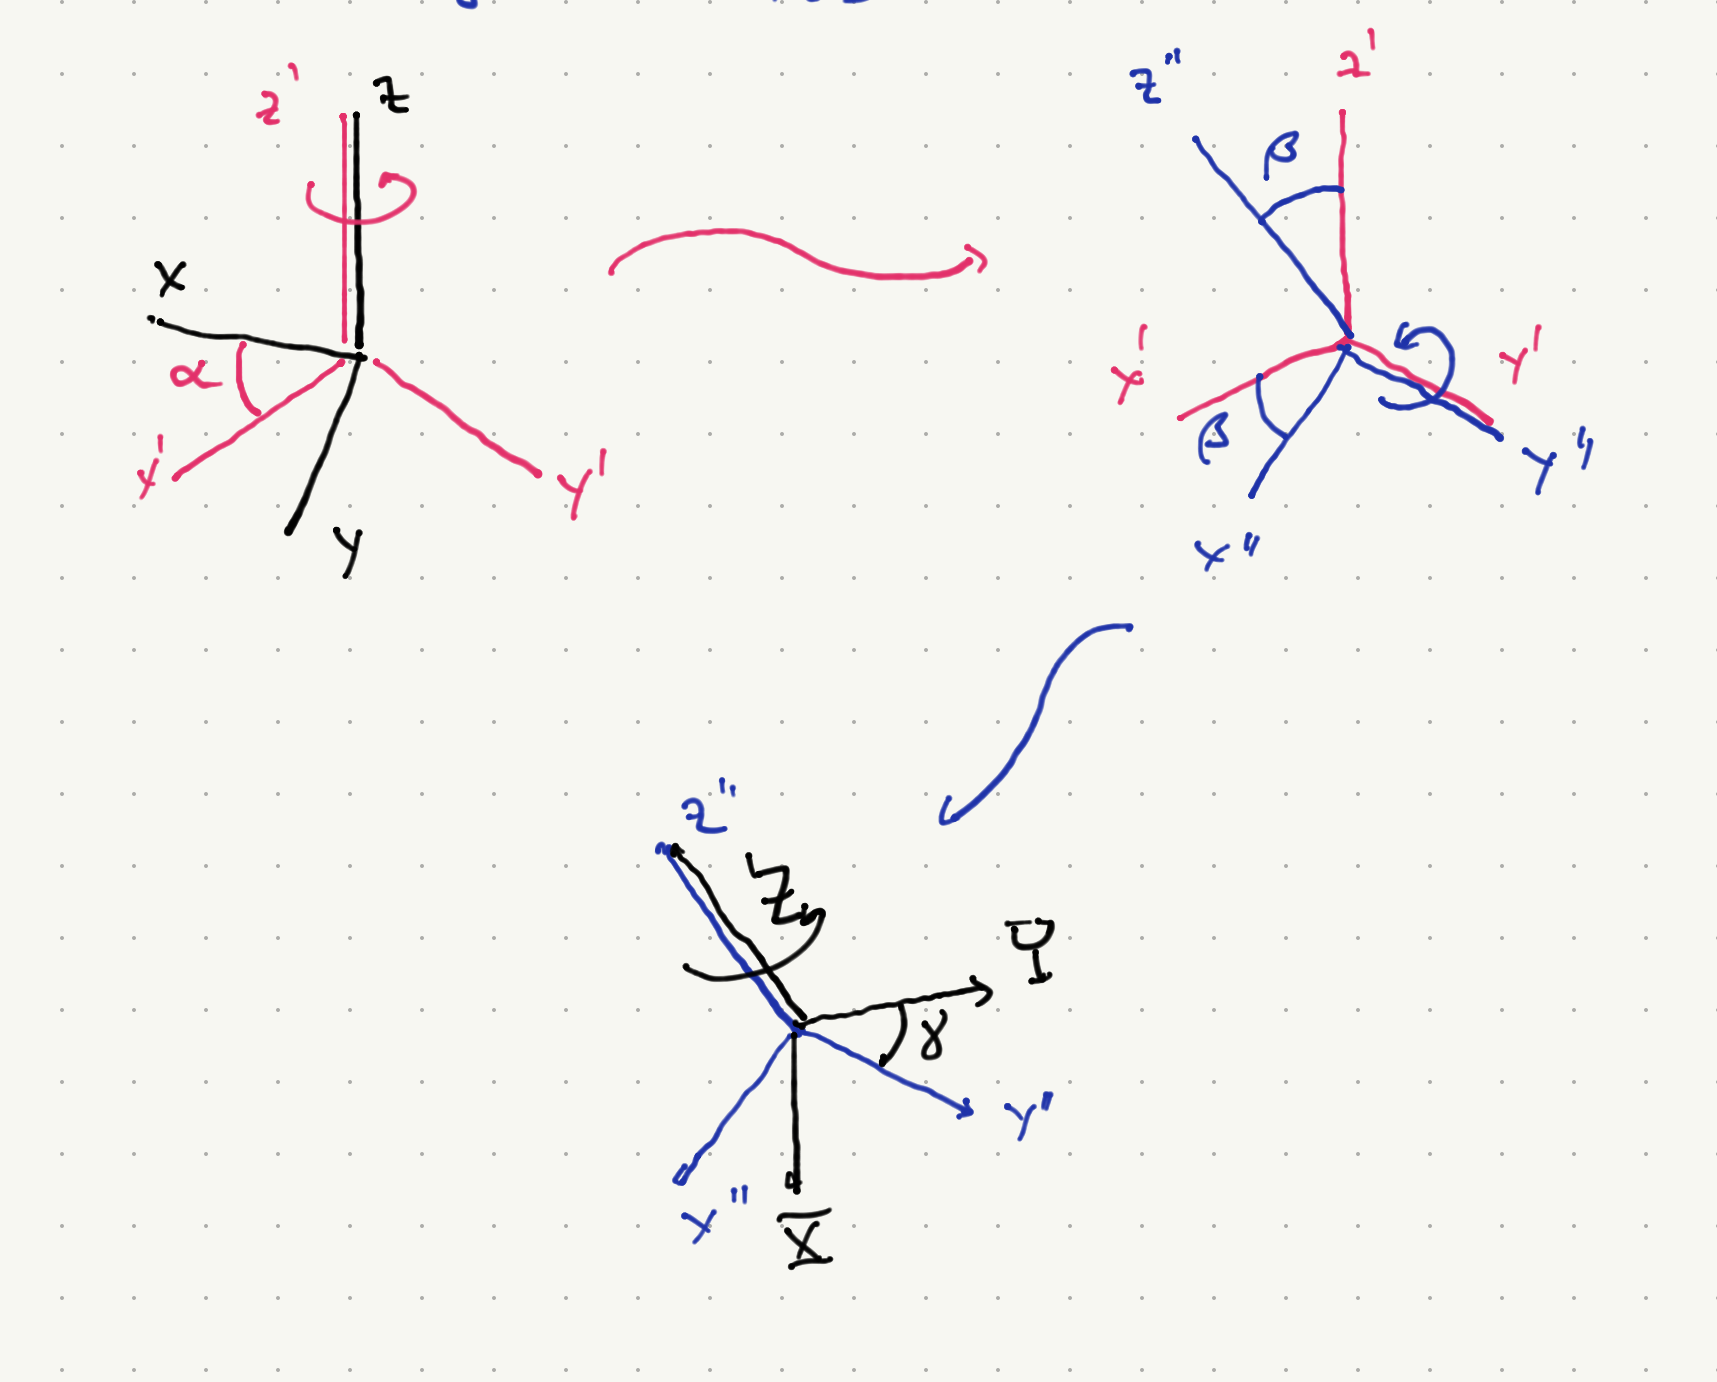 z' z
x
α
x'
y'
y
z'' z'
β
x' y'
β
y''
x''
z''
Z
Y
γ
y''
x'' X